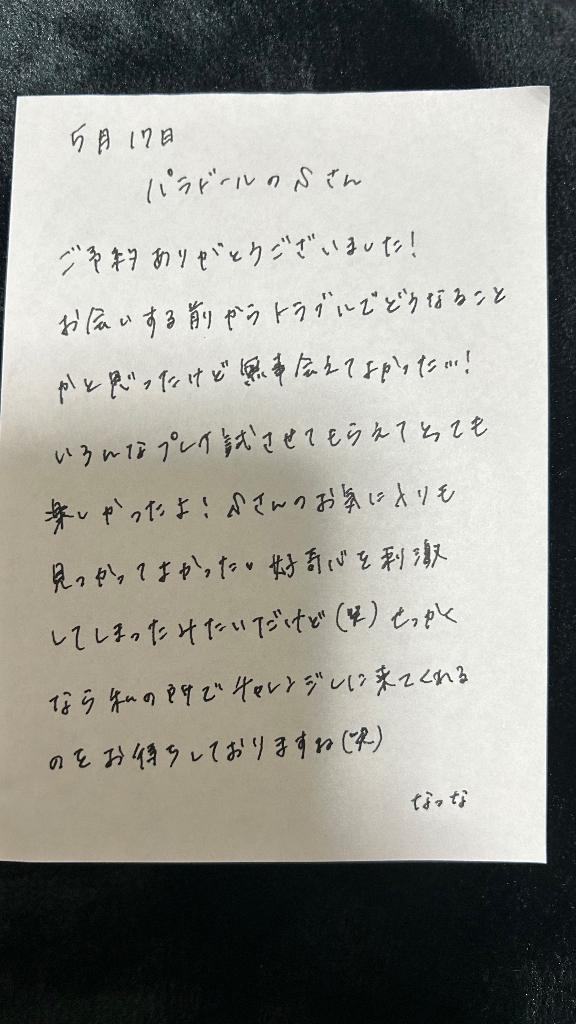 5月17日
パラドールのSさん
ご予約ありがとうございました!
お会いする前からトラブルでどうなること
かと思ったけど無事会えてよかった…!
いろんなプレイ試させてもらえてとっても
楽しかったよ!Sさんのお気に入りも
見つかってよかった。好奇心を刺激
してしまったみたいだけど(笑)せっかく
なら私の時でチャレンジしに来てくれる
のをお待ちしておりますね(笑)
なつな